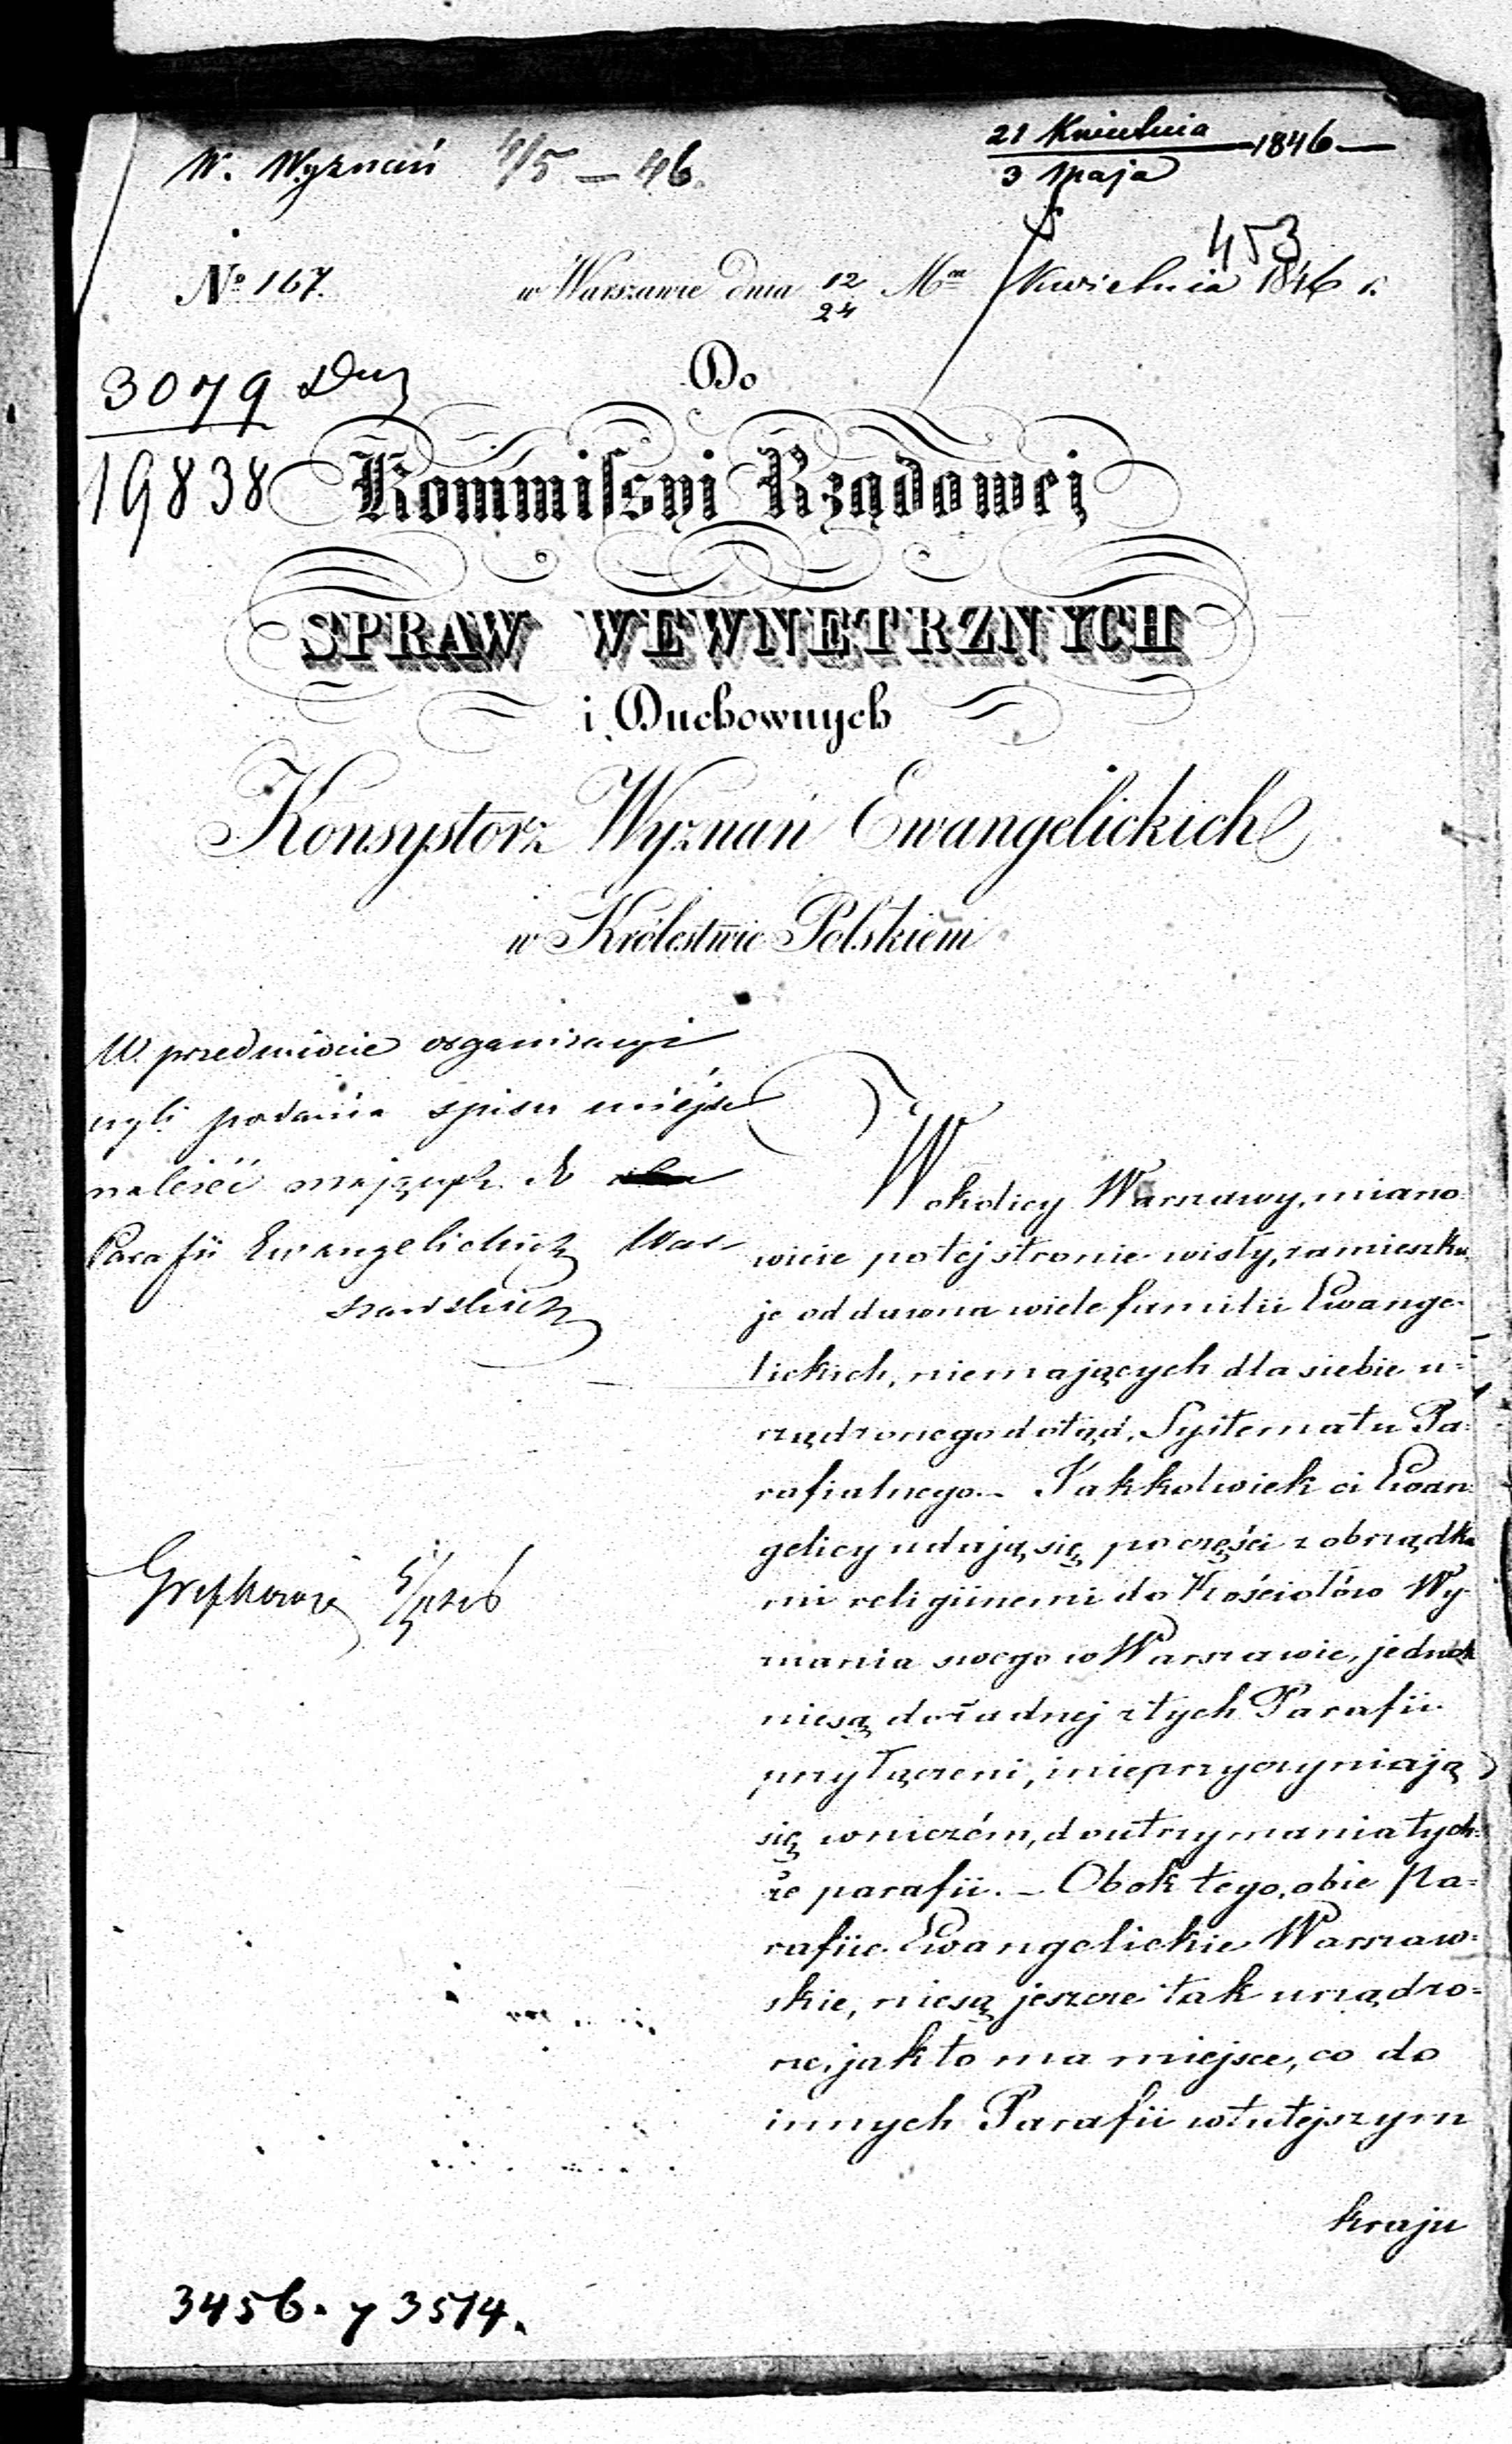 W. Wyznań 4/5 – 46.
21 Kwietnia 1846 –
3 Maja
453
No 167.
w Warszawie dnia 12/24 Mca Kwietnia 1846 r.
3079
19838
Do
Kommissyi Rządowej
SPRAW WEWNĘTRZNYCH
i Duchownych
Konsystorz Wyznań Ewangelickich
w Królestwie Polskiem
W przedmiocie organizacyi
czyli podania spisu miejsc
należeć mających do
Parafii Ewangelickich War-
szawskich
W okolicy Warszawy, miano-
wicie po tej stronie wisły, zamieszku-
je od dawna wiele familii Ewange-
lickich, niemających dla siebie u-
rządzonego dotąd, Systematu Pa-
rafialnego. – Jakkolwiek ci Ewan-
gelicy udają się po części z obrządka-
mi religiinemi do Kościołów Wy-
znania swego w Warszawie, jednak
niesą do żadnej z tych Parafii
przyłączeni, i nieprzyczyniają
się w niczém, do utrzymania tych-
że parafii. – Obok tego, obie Pa-
rafiie Ewangelickie Warszaw-
skie, niesą jeszcze tak urządzo-
ne, jak to ma miejsce, co do
innych Parafii w tutejszym
kraju
3456. y 3514.